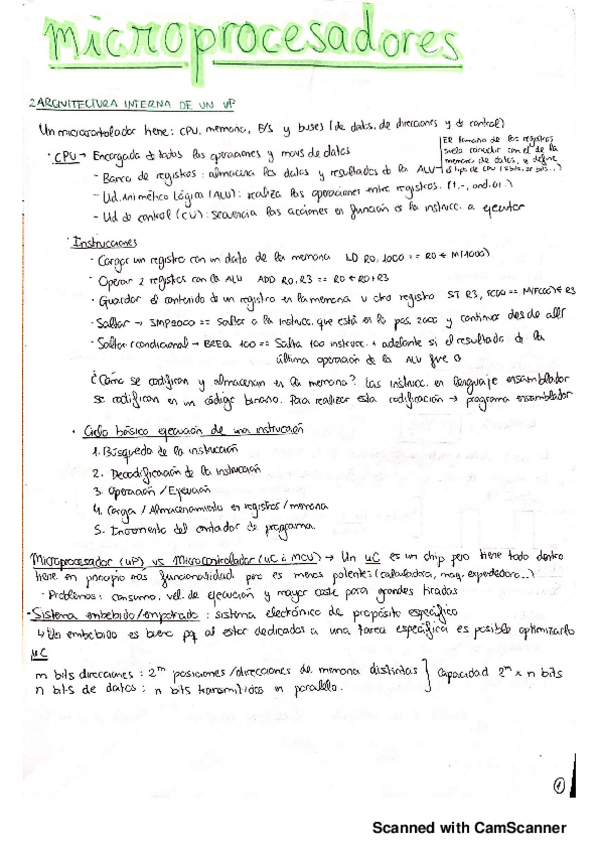 microprocesadores
2 ARQUITECTURA INTERNA DE UN uP
Un microcontrolador tiene: CPU, memoria, E/S y buses (de datos, de direcciones y de control)
· CPU → Encargada de todos las operaciones y movs de datos
El tamaño de los registros
suele coincidir con el de la
memoria de datos, y define
el tipo de CPU (8bits, 32 bits...)
- Banco de registros: almacena los datos y resultados de la ALU
- Ud. Aritmético Lógica (ALU): realiza las operaciones entre registros. (+,-, and, or.)
- Ud de control (CU): secuencia las acciones en función de la instrucc. a ejecutar
· Instrucciones
- Cargar un registro con un dato de la memoria LD R0, 1000 == R0 ← M(1000)
- Operar 2 registros con la ALU ADD R0, R3 == R0 ← R0+R3
- Guardar el contenido de un registro en la memoria u otro registro ST R3, FC00 == M(FC00) ← R3
- Saltar → JMP2000 == Saltar a la instrucc. que está en la pos. 2000 y continuar desde allí
- Saltar condicional → BREQ 100 == Salta 100 instrucc. adelante si el resultado de la
última operación de la ALU fue 0
¿Cómo se codifican y almacenan en la memoria? Las instrucc. en lenguaje ensamblador
se codifican en un código binario. Para realizar esta codificación → programa ensamblador
· Ciclo básico ejecución de una instrucción
1. Búsqueda de la instrucción
2. Decodificación de la instrucción
3. Operación / Ejecución
4. Carga / Almacenamiento en registros / memoria
5. Incremento del contador de programa.
Microprocesador (uP) vs Microcontrolador (uC ó MCU) → Un uC es un chip pero tiene todo dentro
tiene en principio más funcionalidad pero es menos potente: (calculadora, maq. expendedora...)
· Problemas: consumo, vel. de ejecución y mayor coste para grandes tiradas
· Sistema embebido/empotrado: sistema electrónico de propósito específico
↳ Un embebido es bueno pq al estar dedicados a una tarea específica es posible optimizarlo
uC
m bits direcciones: 2^m posiciones/direcciones de memoria distintas } Capacidad 2^m x n bits
n bits de datos: n bits transmitidos en paralelo.
1
Scanned with CamScanner